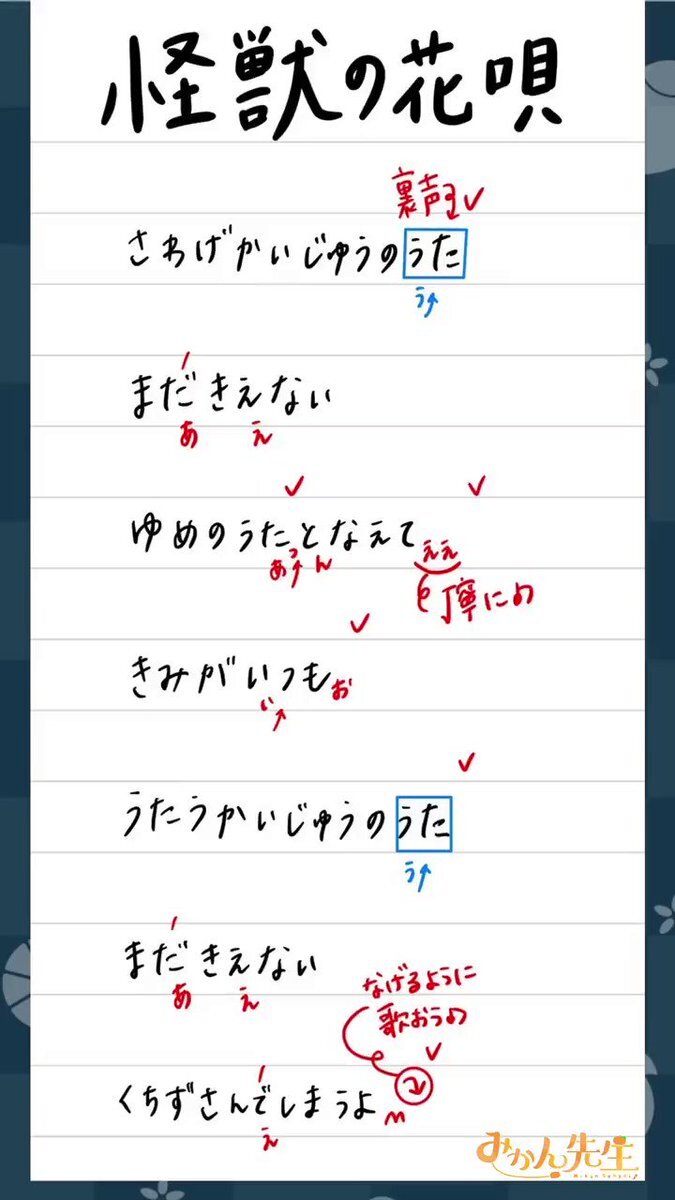 怪獣の花唄
裏声 ✓
さわげかいじゅうのうた
う↗
まだきえない
あ え
✓ ✓
ゆめのうたとなえて
あっ ん ええ
丁寧に
✓
きみがいつもお
い↗
✓
うたうかいじゅうのうた
う↗
まだきえない
あ え
なげるように
歌おう
✓
くちずさんでしまうよ
え
みかん先生